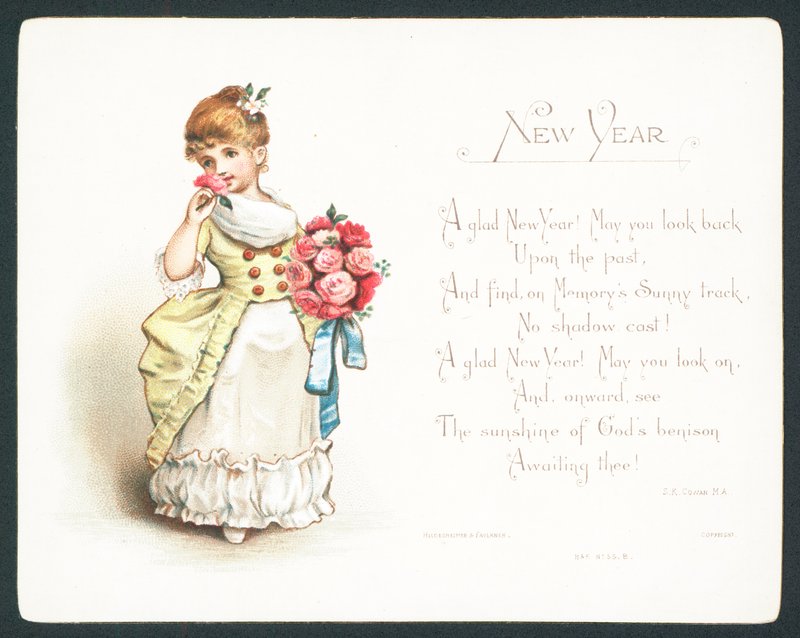 New Year
A glad New Year! May you look back
Upon the past,
And find, on Memory's Sunny track,
No shadow cast!
A glad New Year! May you look on,
And, onward, see
The sunshine of God's benison
Awaiting thee!
S.K. Cowan M.A.
Hildesheimer & Faulkner.
Copyright.